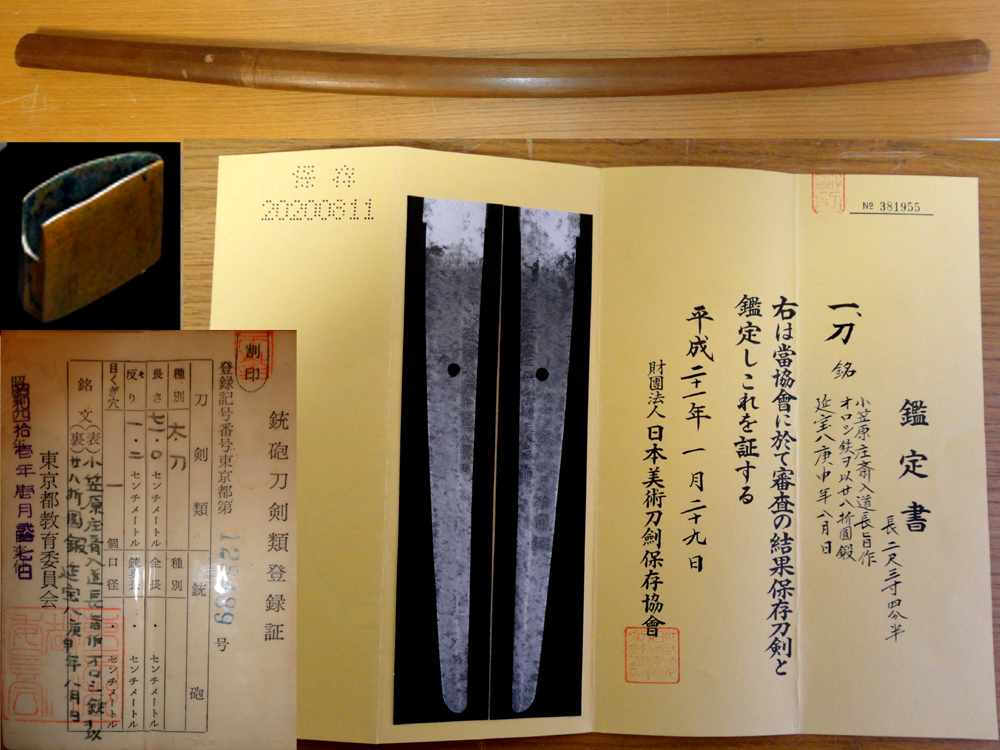 保存
20200811
№ 381955
鑑定書
一、刀 銘
小笠原庄斎入道長旨作
オロシ鉄ヲ以廿八折圓鍛
延宝八庚申年八月日
長二尺三寸四分半
右は當協會に於て審査の結果保存刀剣と
鑑定しこれを証する
平成二十一年一月二十九日
財團法人日本美術刀劍保存協會
銃砲刀剣類登録証
割印
登録記号番号東京都第
号
刀剣類
銃砲
種別
太刀
種別
長さ
七一・〇センチメートル
全長
・センチメートル
反り
そ
一・二センチメートル
銃身長
・センチメートル
目くぎ穴
一個
口径
・センチメートル
銘文
(表)小笠原庄斉入道長旨作オロシ鉄ヲ以
(裏)廿八折圓鍛延宝八庚申年八月日
東京都教育委員会